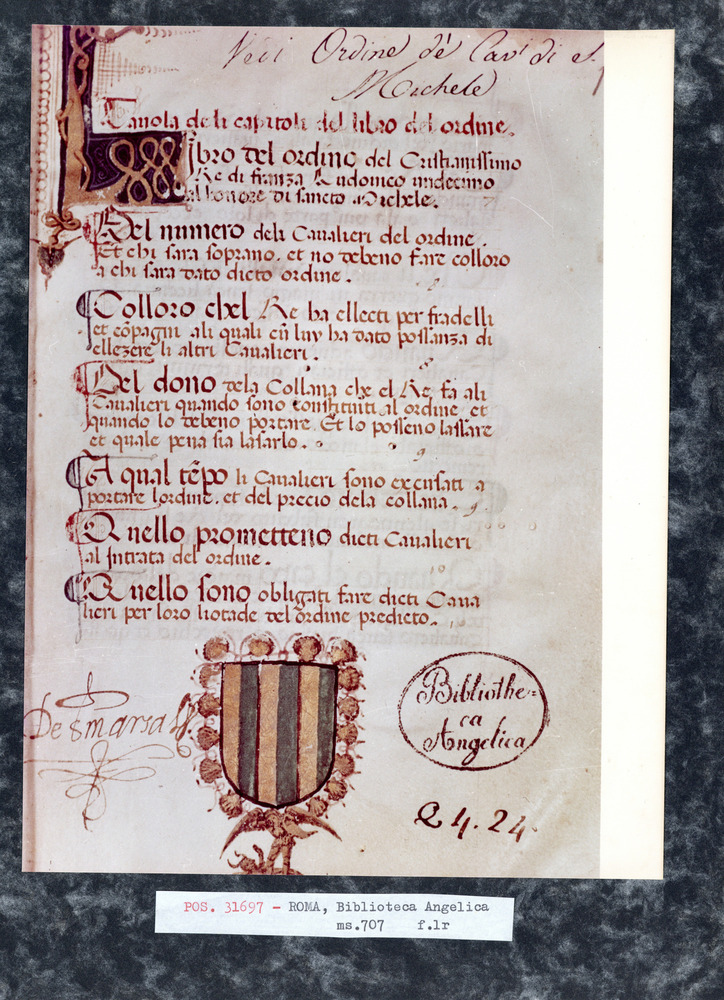 Veci Ordine de Cavi di S.
Michele
Tauola de li capitoli del libro del ordine.
Libro del ordine del Cristianissimo
Re di franza Ludouico undecimo
al honore di sancto Michele.
Del numero deli Caualieri del ordine.
Et chi sara soprano. et no debeno fare colloro
a chi sara dato dicto ordine.
Colloro chel Re ha ellecti per fradelli
et cõpagni ali quali cũ luy ha dato possanza di
ellezere li altri Caualieri.
Del dono dela Collana che el Re fa ali
Caualieri quando sono constituiti al ordine et
quando lo debeno portare. Et lo posseno lassare
et quale pena sia lasarlo.
A qual tẽpo li Caualieri sono excusati a
portare lordine. et del precio dela collana. 9.
Quello prometteno dicti Caualieri
al Intrata del ordine. 10
Quello sono obligati fare dicti Caua
lieri per loro liotade del ordine predicto.
Desmarais
Bibliothe=
ca
Angelica
Q 4. 24.
POS. 31697 - ROMA, Biblioteca Angelica
ms.707 f.1r